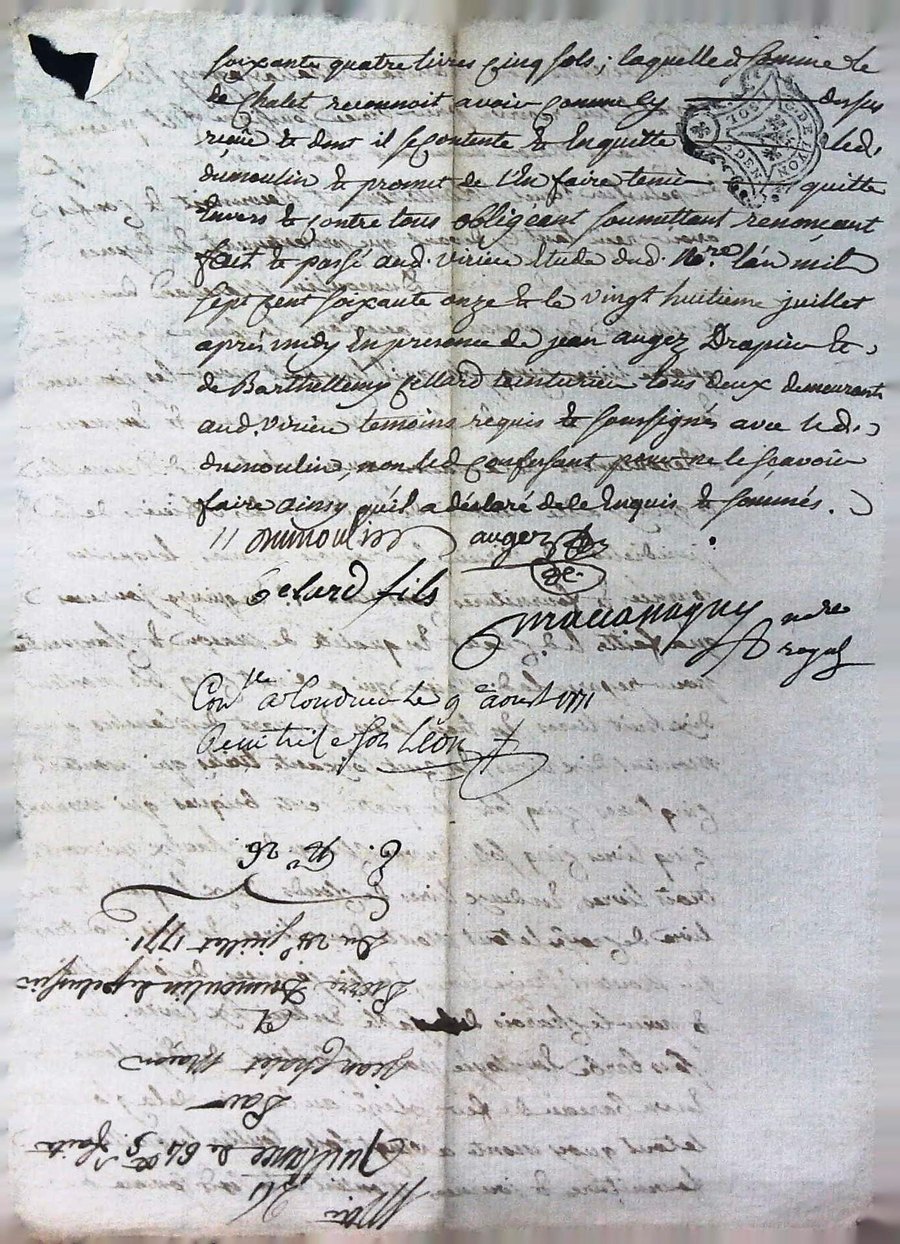 soixante quatre livres cinq sols; laquelle d somme led
de Chalet reconnoit avoir comme cy dessus
reçüe & dont il se contente & En quitte led.
dumoulin & promet de l'En faire tenir quitte
Envers & contre tous obligeant soumettant renonçant
fait & passé aud. virieu Etude dud. No.re l'an mil
sept cent soixante onze & le vingt huitieme juillet
après midy En presence de jean augez Drapier &
de Barthellemy Cellard teinturier tous deux demeurants
aud. virieu temoins requis & soussignés avec led.
dumoulin, non led. confessant pour ne le sçavoir
faire ainsy qu'il a déclaré de ce Enquis & sommés.
dumoulin augez
Celard fils
no.re
royal
Con.lé a Condrieu le 9e aoust 1771
Reçu treize sols Léon
SOL
G. DE LYON
N.o 26
Du 28.e juillet 1771.
Pierre Dumoulin de pelussin
A
Jean Chalet Maçon
Par
Quittance de 64# 5s. faite